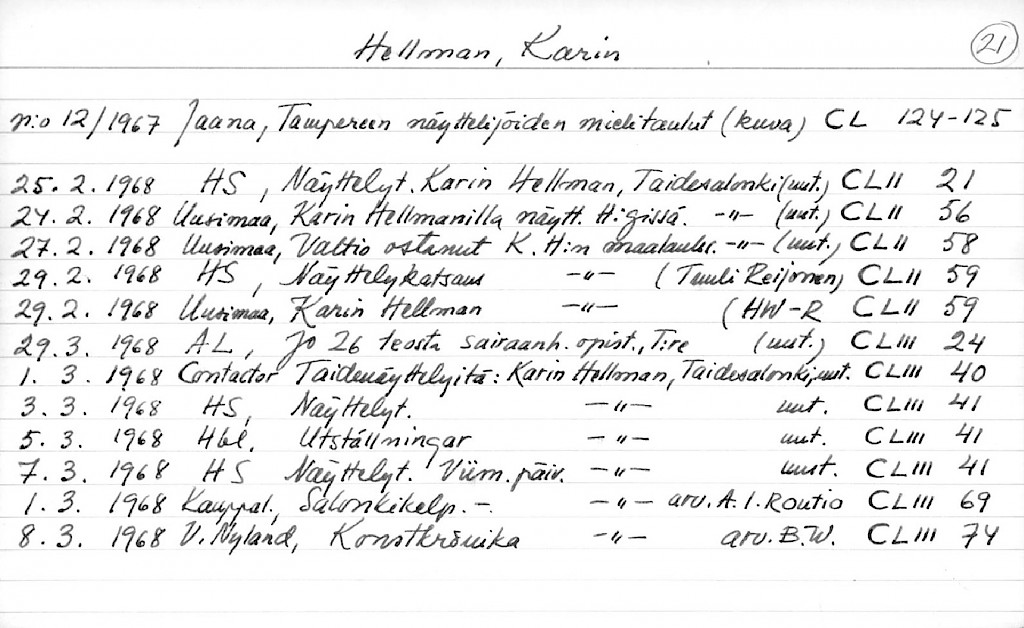 Hellman, Karin 21
n:o 12/1967 Jaana, Tampereen näyttelijöiden mielitaulut (kuva) CL 124-125
25. 2. 1968 HS, Näyttelyt. Karin Hellman, Taidesalonki (uut.) CLII 21
24. 2. 1968 Uusimaa, Karin Hellmanilla näytt. H:gissä. -"- (uut.) CLII 56
27. 2. 1968 Uusimaa, Valtio ostanut K. H:n -"- (uut.) CLII 58
29. 2. 1968 HS, Näyttelykatsaus -"- (Tuuli Reijonen) CLII 59
29. 2. 1968 Uusimaa, Karin Hellman -"- (HW-R CLII 59
29. 3. 1968 AL, Jo 26 teosta sairaanh. opist., T:re (uut.) CLIII 24
1. 3. 1968 Contactor Taidenäyttelyitä: Karin Hellman, Taidesalonki, uut. CLIII 40
3. 3. 1968 HS, Näyttelyt. -"- uut. CLIII 41
5. 3. 1968 Hbl. Utställningar -"- uut. CLIII 41
7. 3. 1968 HS Näyttelyt. Viim. päiv. -"- uut. CLIII 41
1. 3. 1968 Kauppal., Salonkikelp. -. -"- arv. A. I. Routio CLIII 69
8. 3. 1968 V. Nyland, Konstkrönika -"- arv. B.W. CLIII 74